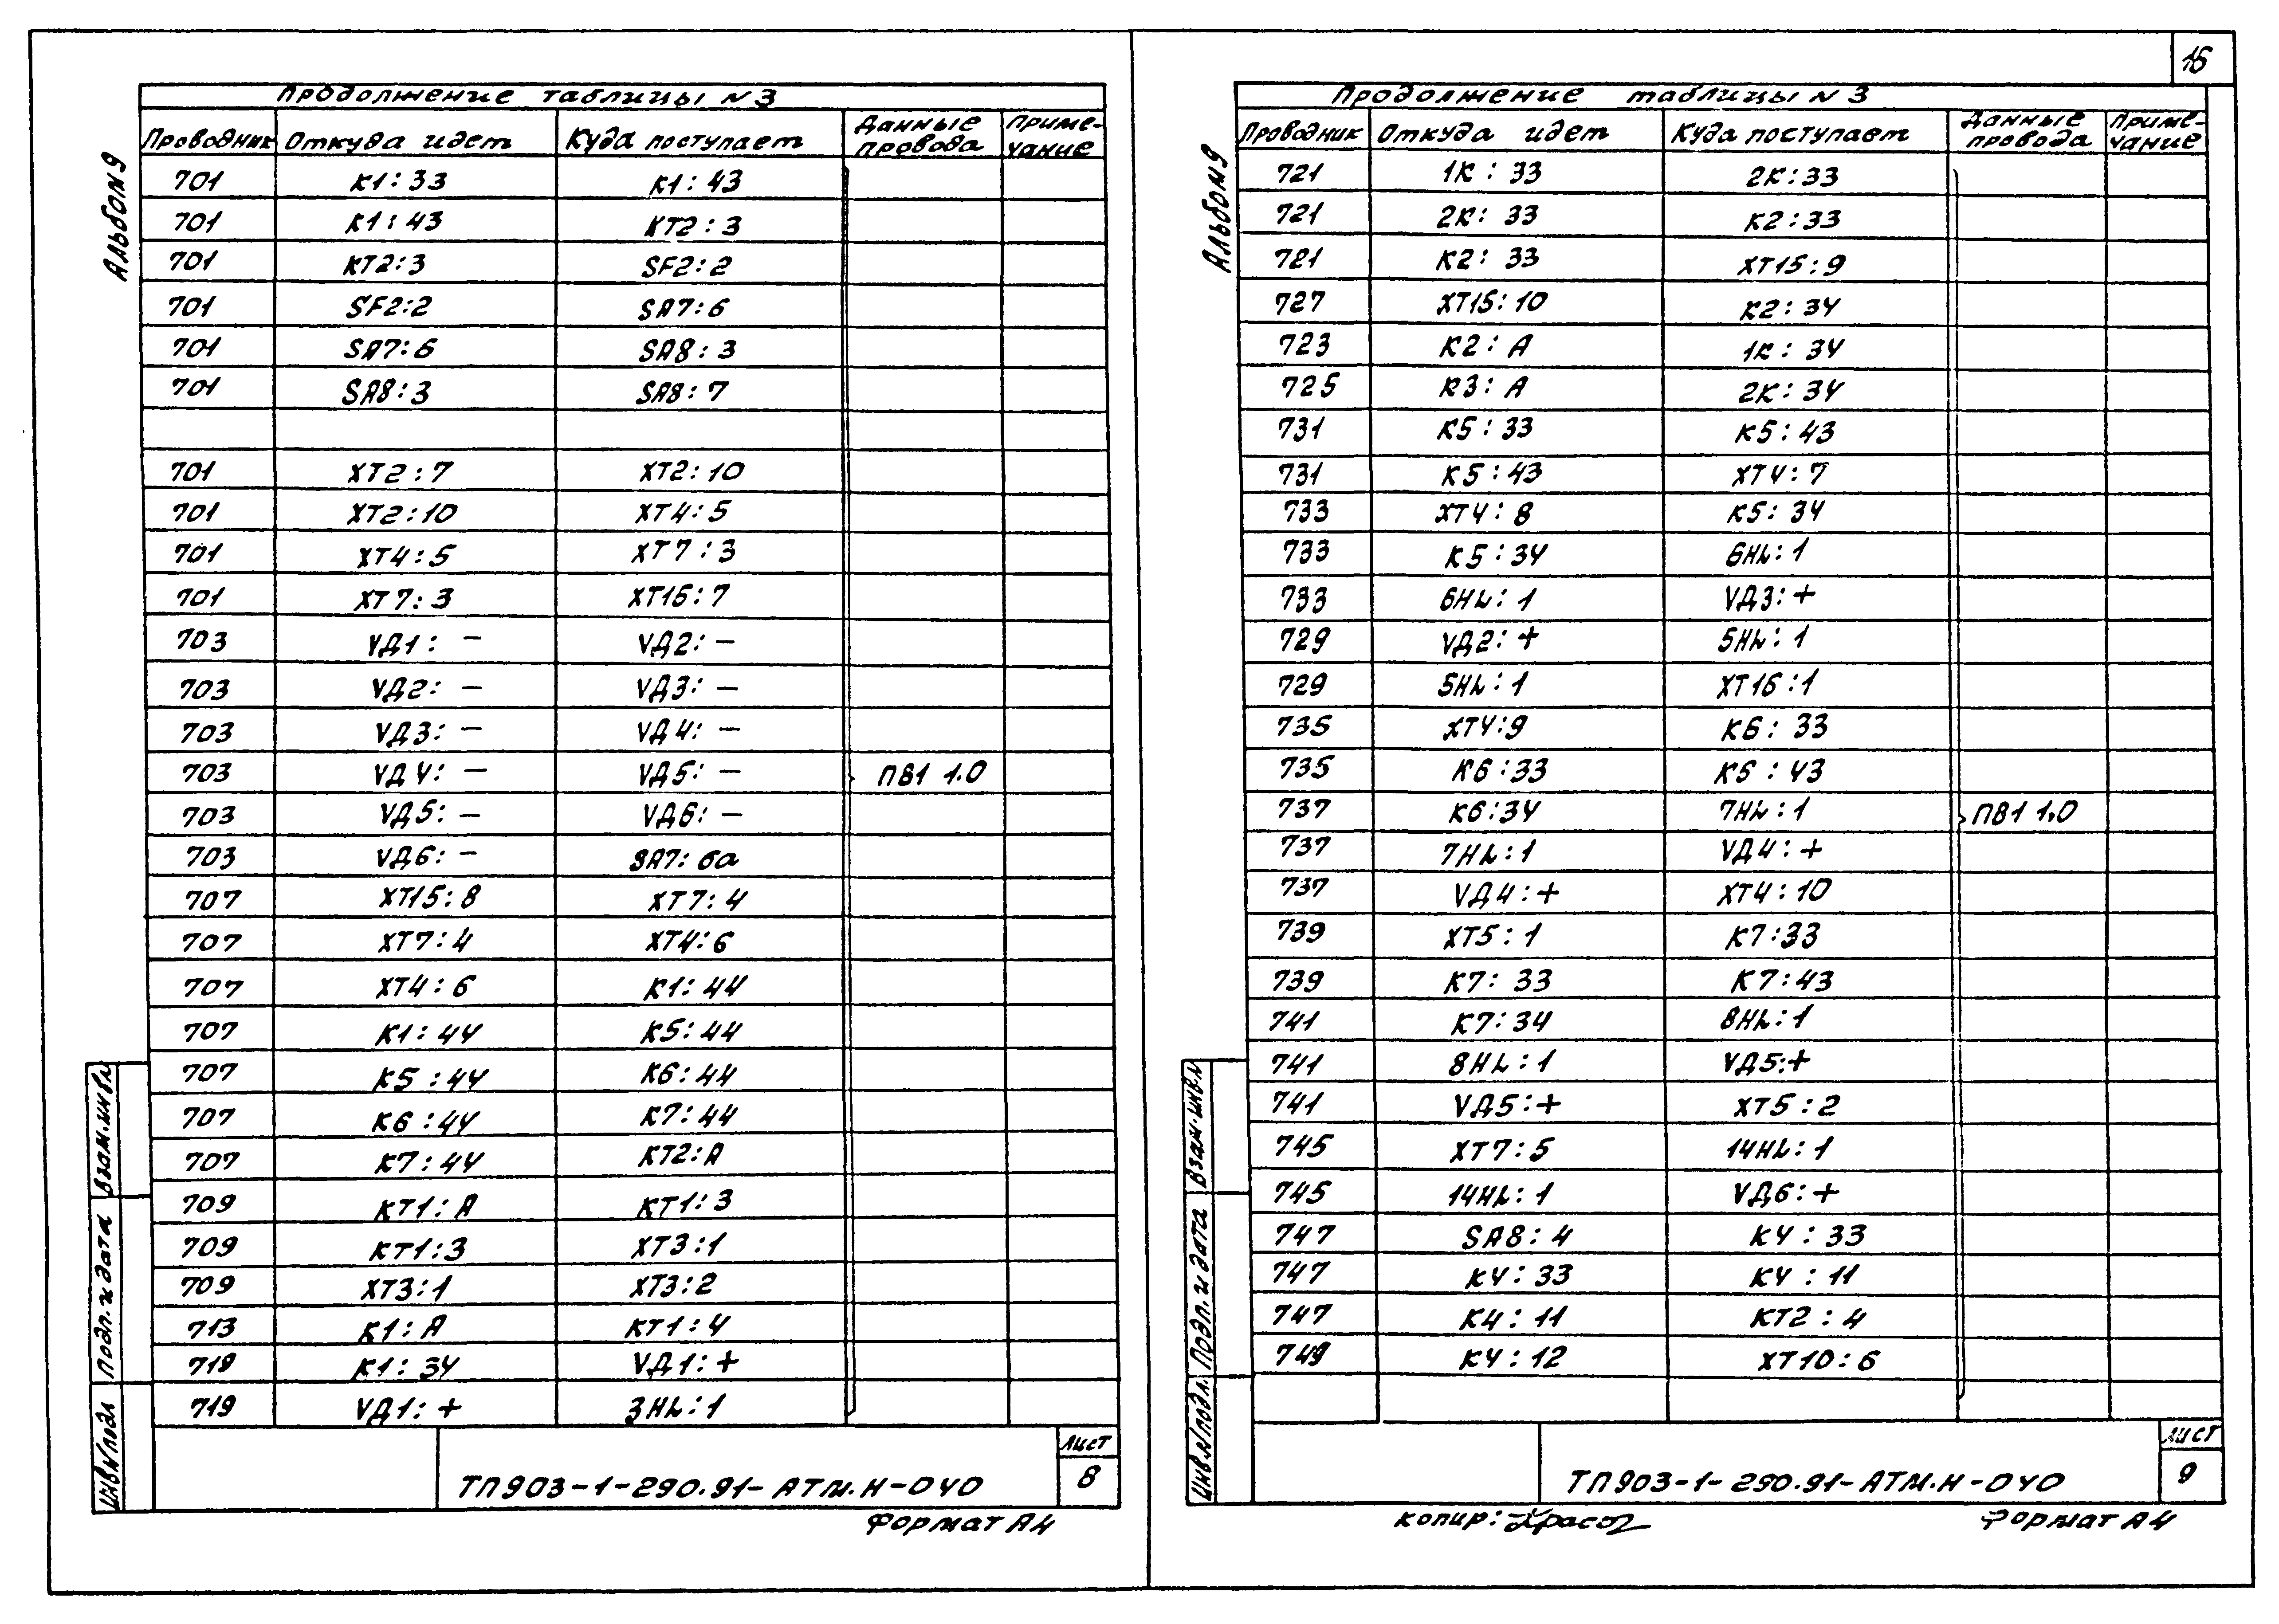 15
Альбом 9
Продолжение таблицы N 3
Проводник Откуда идет Куда поступает Данные провода Приме-чание
701 К1:33 К1:43
701 К1:43 КТ2:3
701 КТ2:3 SF2:2
701 SF2:2 SA7:6
701 SA7:6 SA8:3
701 SA8:3 SA8:7
701 ХТ2:7 ХТ2:10
701 ХТ2:10 ХТ4:5
701 ХТ4:5 ХТ7:3
701 ХТ7:3 ХТ16:7
703 VД1: – VД2: –
703 VД2: – VД3: –
703 VД3: – VД4: –
703 VД4: – VД5: – ПВ1 1.0
703 VД5: – VД6: –
703 VД6: – SA7: 6а
707 ХТ15:8 ХТ7:4
707 ХТ7:4 ХТ4:6
707 ХТ4:6 К1:44
707 К1:44 К5:44
707 К5:44 К6:44
707 К6:44 К7:44
707 К7:44 КТ2:А
709 КТ1:А КТ1:3
709 КТ1:3 ХТ3:1
709 ХТ3:1 ХТ3:2
713 К1:А КТ1:4
719 К1:34 VД1:+
719 VД1:+ 3HL:1
Взам.инв.N
Подп. и дата
Инв.N подл
ТП903-1-290.91-АТМ.Н-040
Лист
8
Формат А4
Альбом 9
Продолжение таблицы N 3
Проводник Откуда идет Куда поступает Данные провода Приме-чание
721 1К:33 2К:33
721 2К:33 К2:33
721 К2:33 ХТ15:9
727 ХТ15:10 К2:34
723 К2:А 1К:34
725 К3:А 2К:34
731 К5:33 К5:43
731 К5:43 ХТ4:7
733 ХТ4:8 К5:34
733 К5:34 6HL:1
733 6HL:1 VД3:+
729 VД2:+ 5HL:1
729 5HL:1 ХТ16:1
735 ХТ4:9 К6:33
735 К6:33 К6:43
737 К6:34 7HL:1 ПВ1 1,0
737 7HL:1 VД4:+
737 VД4:+ ХТ4:10
739 ХТ5:1 К7:33
739 К7:33 К7:43
741 К7:34 8HL:1
741 8HL:1 VД5:+
741 VД5:+ ХТ5:2
745 ХТ7:5 14HL:1
745 14HL:1 VД6:+
747 SA8:4 К4:33
747 К4:33 К4:11
747 К4:11 КТ2:4
749 К4:12 ХТ10:6
Взам.инв.N
Подп. и дата
Инв.N подл.
ТП903-1-290.91-АТМ.Н-040
Лист
9
копир:
Формат А4